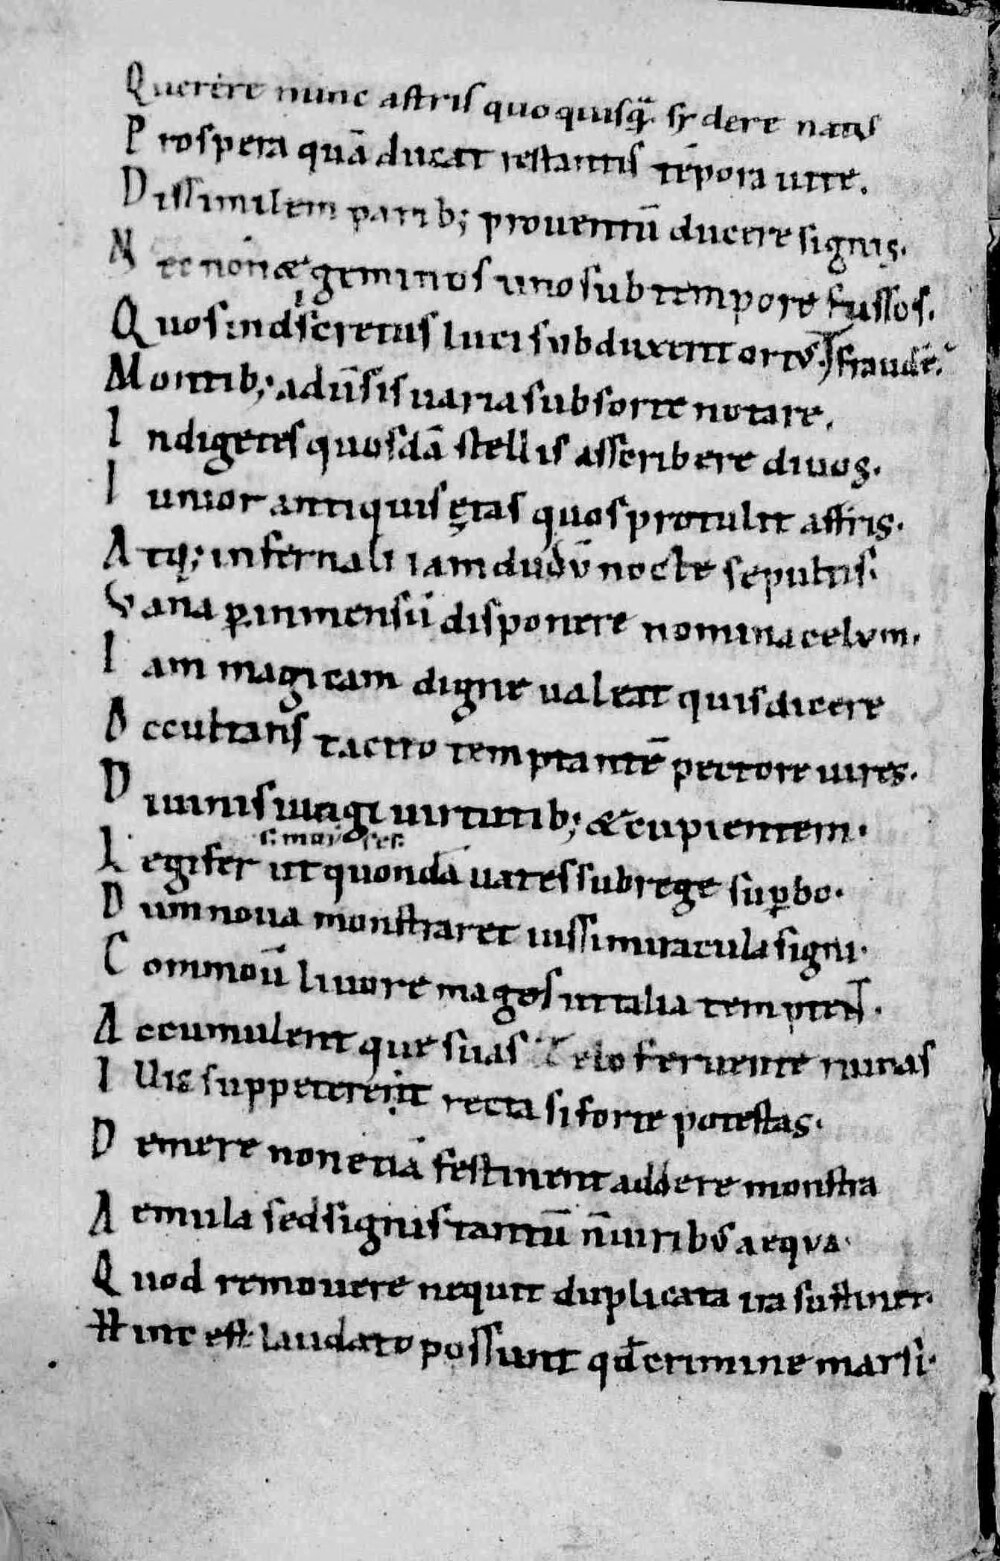 Querere nunc astris quo quisq̃ sydere natus
Prospera quā ducat restantis tēpora uite.
Dissimilem parib; prouentū ducere signis.
Nec non & geminos uno sub tempore fussos.
Quos indiscretus luci subduxerit ortus. fraudē.
Montib; aduersis uaria sub sorte notare.
Indigetes quosdā stellis asscribere diuos.
Iunior antiquis ętas quos protulit astris.
Atq; infernali iamdudū nocte sepultis.
Vana ꝑ inmensū disponere nomina celum.
Iam magicam digne ualeat quis dicere
Occultans tacito temptantē pectore uires.
Diuinis iungi uirtutib; & cupientem.
s. moises
Legifer ut quondā uates sub rege suꝑbo.
Dum noua monstraret iussi miracula signi.
Commouit liuore magos ut talia temptent.
Accumulent que suas zelo feruente ruinas
Illis suppeterent recta si forte potestas.
Demere non etiā festinent addere monstra
Aemula sed signis tantū n̄ uiribus aequa.
Quod remouere nequit duplicata ira sustinet.
Hinc est laudato possunt qđ crimine marsi.